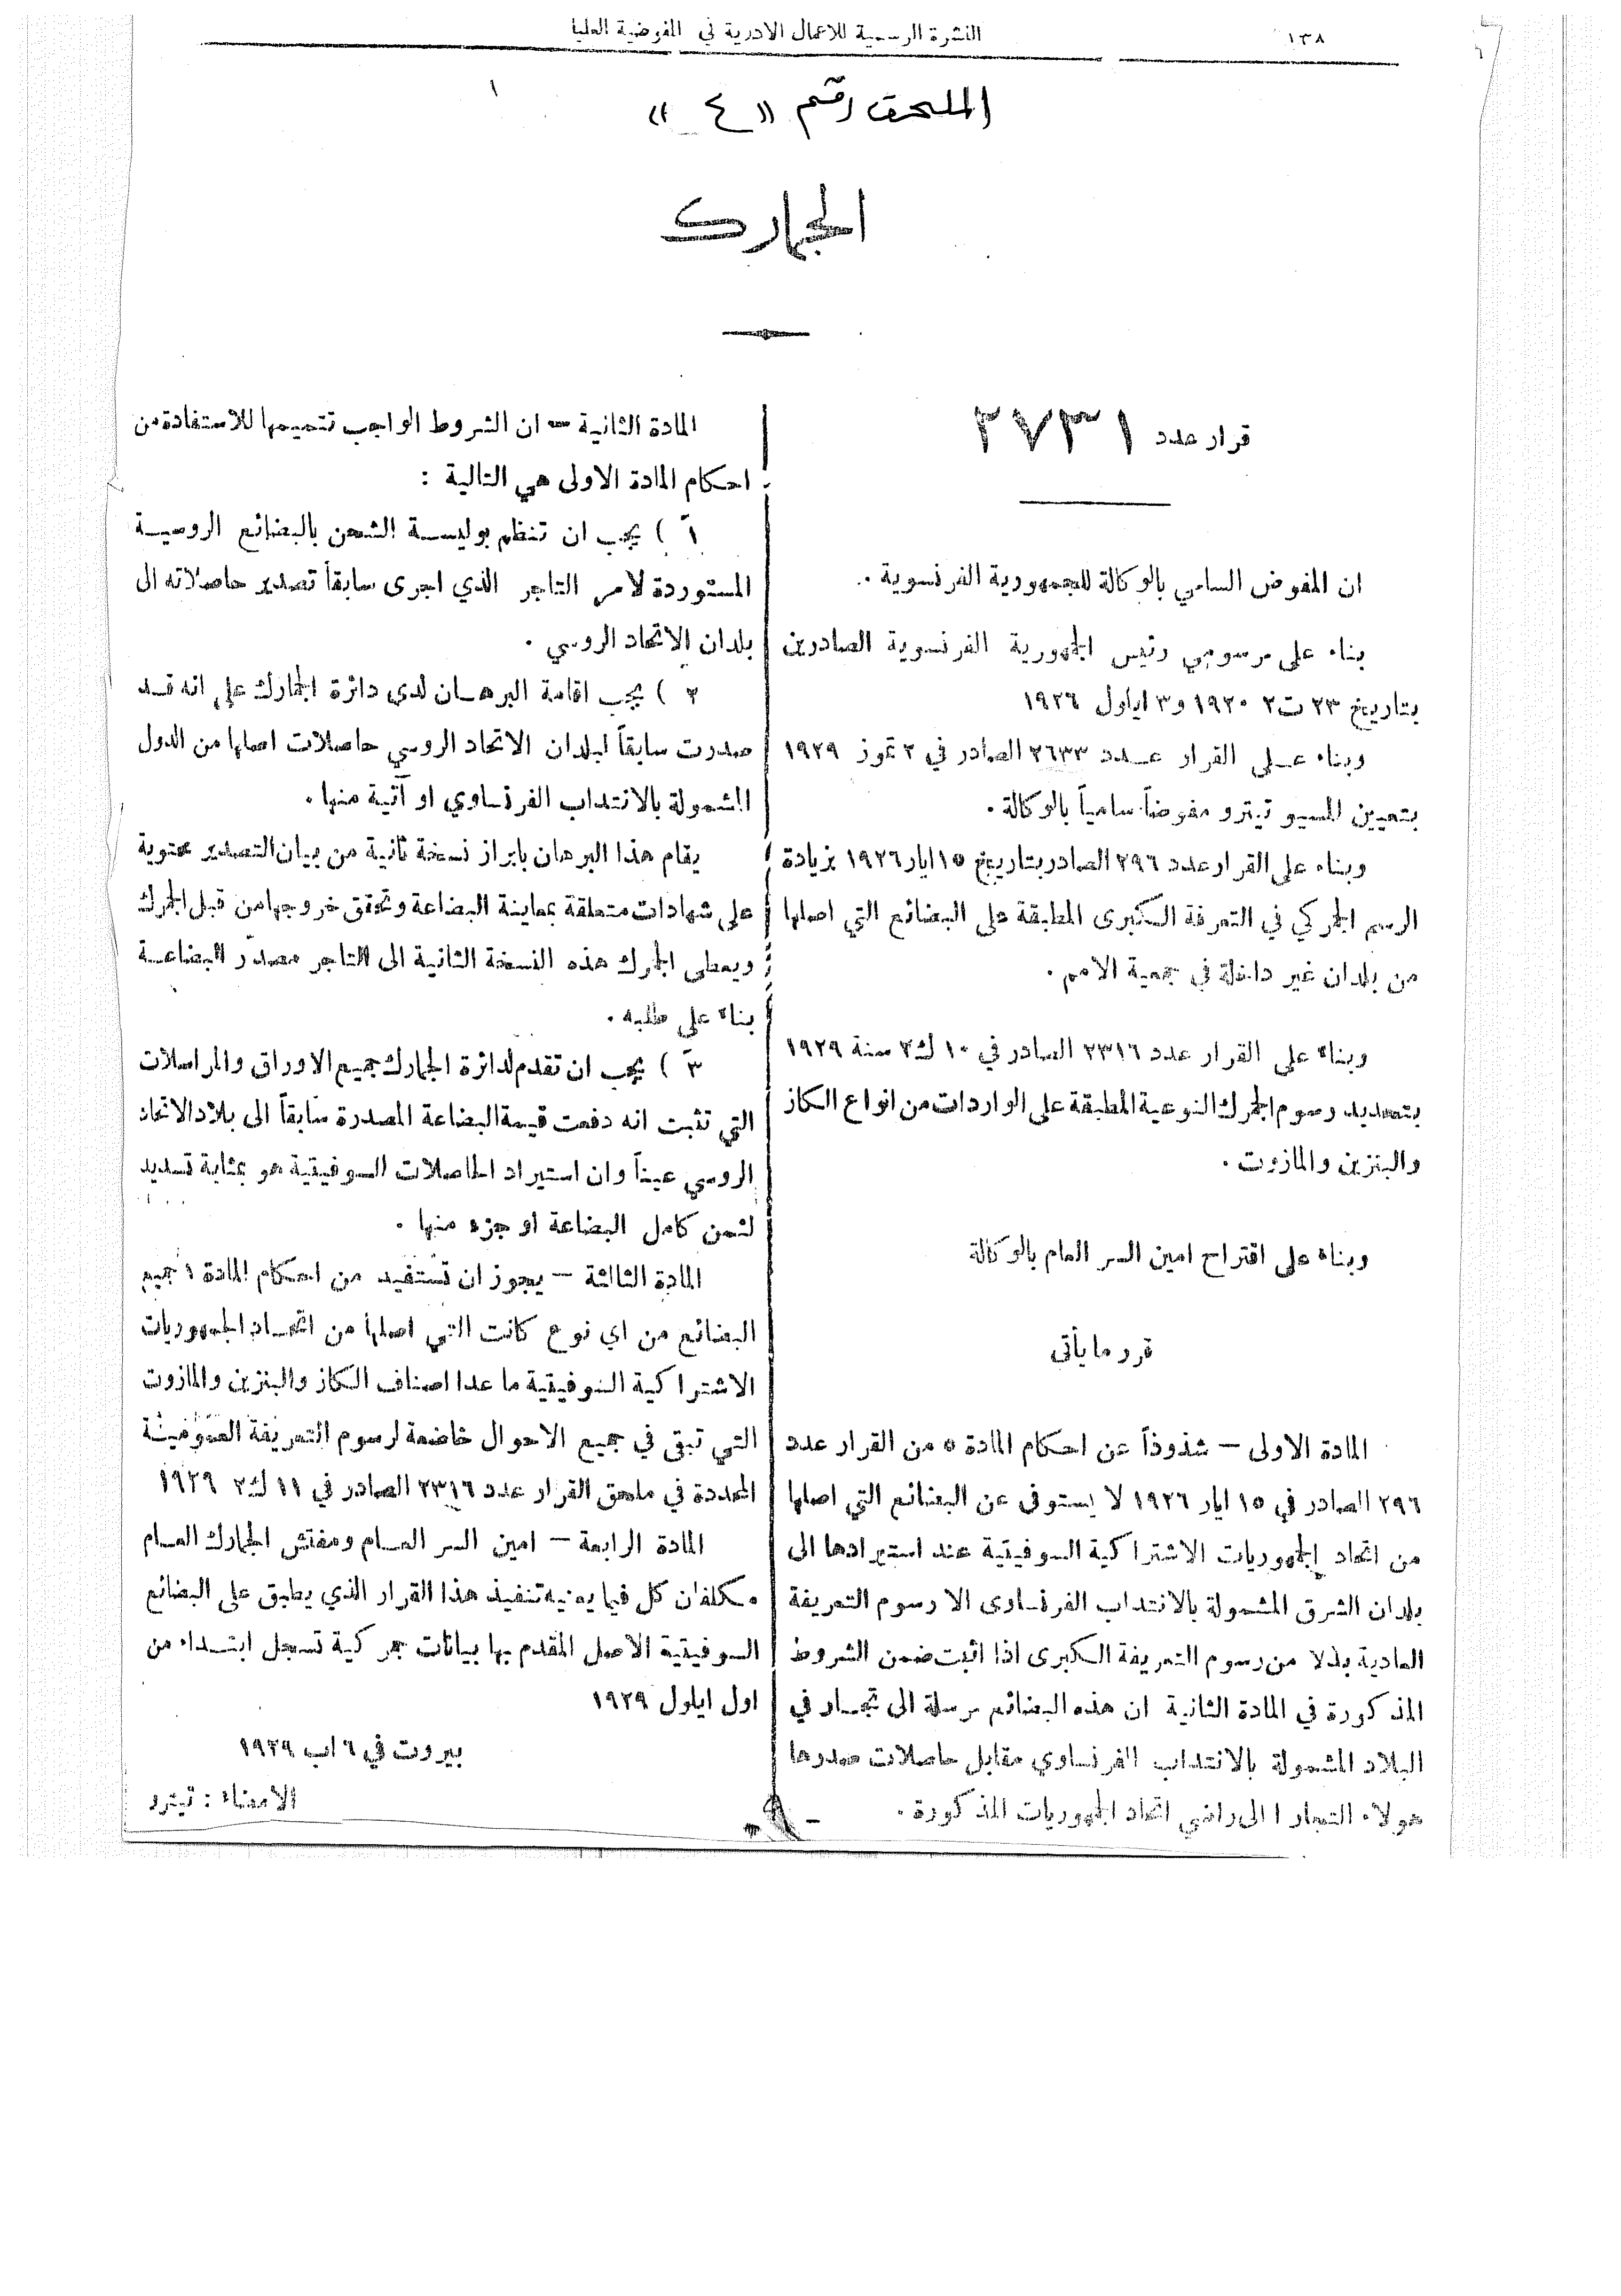 النشرة الرسمية للاعمال الادرية في المفوضية العليا
١٣٨
الملحق رقم «٤»
الجمارك
قرار عدد ٢٧٣١
ان المفوض السامي بالوكالة للجمهورية الفرنسوية .
بناء على مرسومي رئيس الجمهورية الفرنسوية الصادرين
بتاريخ ٢٣ ت٢ ١٩٢٠ و٣ ايلول ١٩٢٦
وبناء على القرار عدد ٢٦٣٣ الصادر في ٢ تموز ١٩٢٩
بتعيين المسيو تيترو مفوضاً سامياً بالوكالة .
وبناء على القرار عدد ٢٩٦ الصادر بتاريخ ١٥ ايار ١٩٢٦ بزيادة
الرسم الجمركي في التعرفة الكبرى المطبقة على البضائع التي اصلها
من بلدان غير داخلة في جمعية الامم .
وبناء على القرار عدد ٢٣١٦ الصادر في ١٠ ك٢ سنة ١٩٢٩
بتحديد رسوم الجمرك النوعية المطبقة على الواردات من انواع الكاز
والبنزين والمازوت .
وبناء على اقتراح امين السر العام بالوكالة
قرر ما يأتى
المادة الاولى — شذوذاً عن احكام المادة ٥ من القرار عدد
٢٩٦ الصادر في ١٥ ايار ١٩٢٦ لا يستوفى عن البضائع التي اصلها
من اتحاد الجمهوريات الاشتراكية السوفيتية عند استيرادها الى
بلدان الشرق المشمولة بالانتداب الفرنساوى الا رسوم التعريفة
العادية بدلا من رسوم التعريفة الكبرى اذا اثبت ضمن الشروط
المذكورة في المادة الثانية ان هذه البضائع مرسلة الى تجار في
البلاد المشمولة بالانتداب الفرنساوي مقابل حاصلات صدرها
هولاء التجار الى راضي اتحاد الجمهوريات المذكورة .
المادة الثانية — ان الشروط الواجب تتميمها للاستفادة من
احكام المادة الاولى هي التالية :
١ً ) يجب ان تنظم بوليسة الشحن بالبضائع الروسية
المستوردة لامر التاجر الذي اجرى سابقاً تصدير حاصلاته الى
بلدان الاتحاد الروسي .
٢ً ) يجب اقامة البرهان لدى دائرة الجمارك على انه قد
صدرت سابقاً لبلدان الاتحاد الروسي حاصلات اصلها من الدول
المشمولة بالانتداب الفرنساوي او آتية منها .
يقام هذا البرهان بابراز نسخة ثانية من بيان التصدير محتوية
على شهادات متعلقة بمعاينة البضاعة وتحقق خروجها من قبل الجمرك
ويعطى الجمرك هذه النسخة الثانية الى التاجر مصدّر البضاعة
بناء على طلبه .
٣ً ) يجب ان تقدم لدائرة الجمارك جميع الاوراق والمراسلات
التي تثبت انه دفعت قيمة البضاعة المصدرة سابقاً الى بلاد الاتحاد
الروسي عيناً وان استيراد الحاصلات السوفيتية هو بمثابة تسديد
لثمن كامل البضاعة او جزء منها .
المادة الثالثة — يجوز ان تستفيد من احكام المادة ١ جميع
البضائع من اي نوع كانت التي اصلها من اتحاد الجمهوريات
الاشتراكية السوفيتية ما عدا اصناف الكاز والبنزين والمازوت
التي تبقى في جميع الاحوال خاضعة لرسوم التعريفة العمومية
المحددة في ملحق القرار عدد ٢٣١٦ الصادر في ١١ ك٢ ١٩٢٩
المادة الرابعة — امين السر العام ومفتش الجمارك العام
مكلفان كل فيما يعنيه تنفيذ هذا القرار الذي يطبق على البضائع
السوفيتية الاصل المقدم بها بيانات جمركية تسجل ابتداء من
اول ايلول ١٩٢٩
بيروت في ٦ اب ١٩٢٩
الامضاء : تيترو